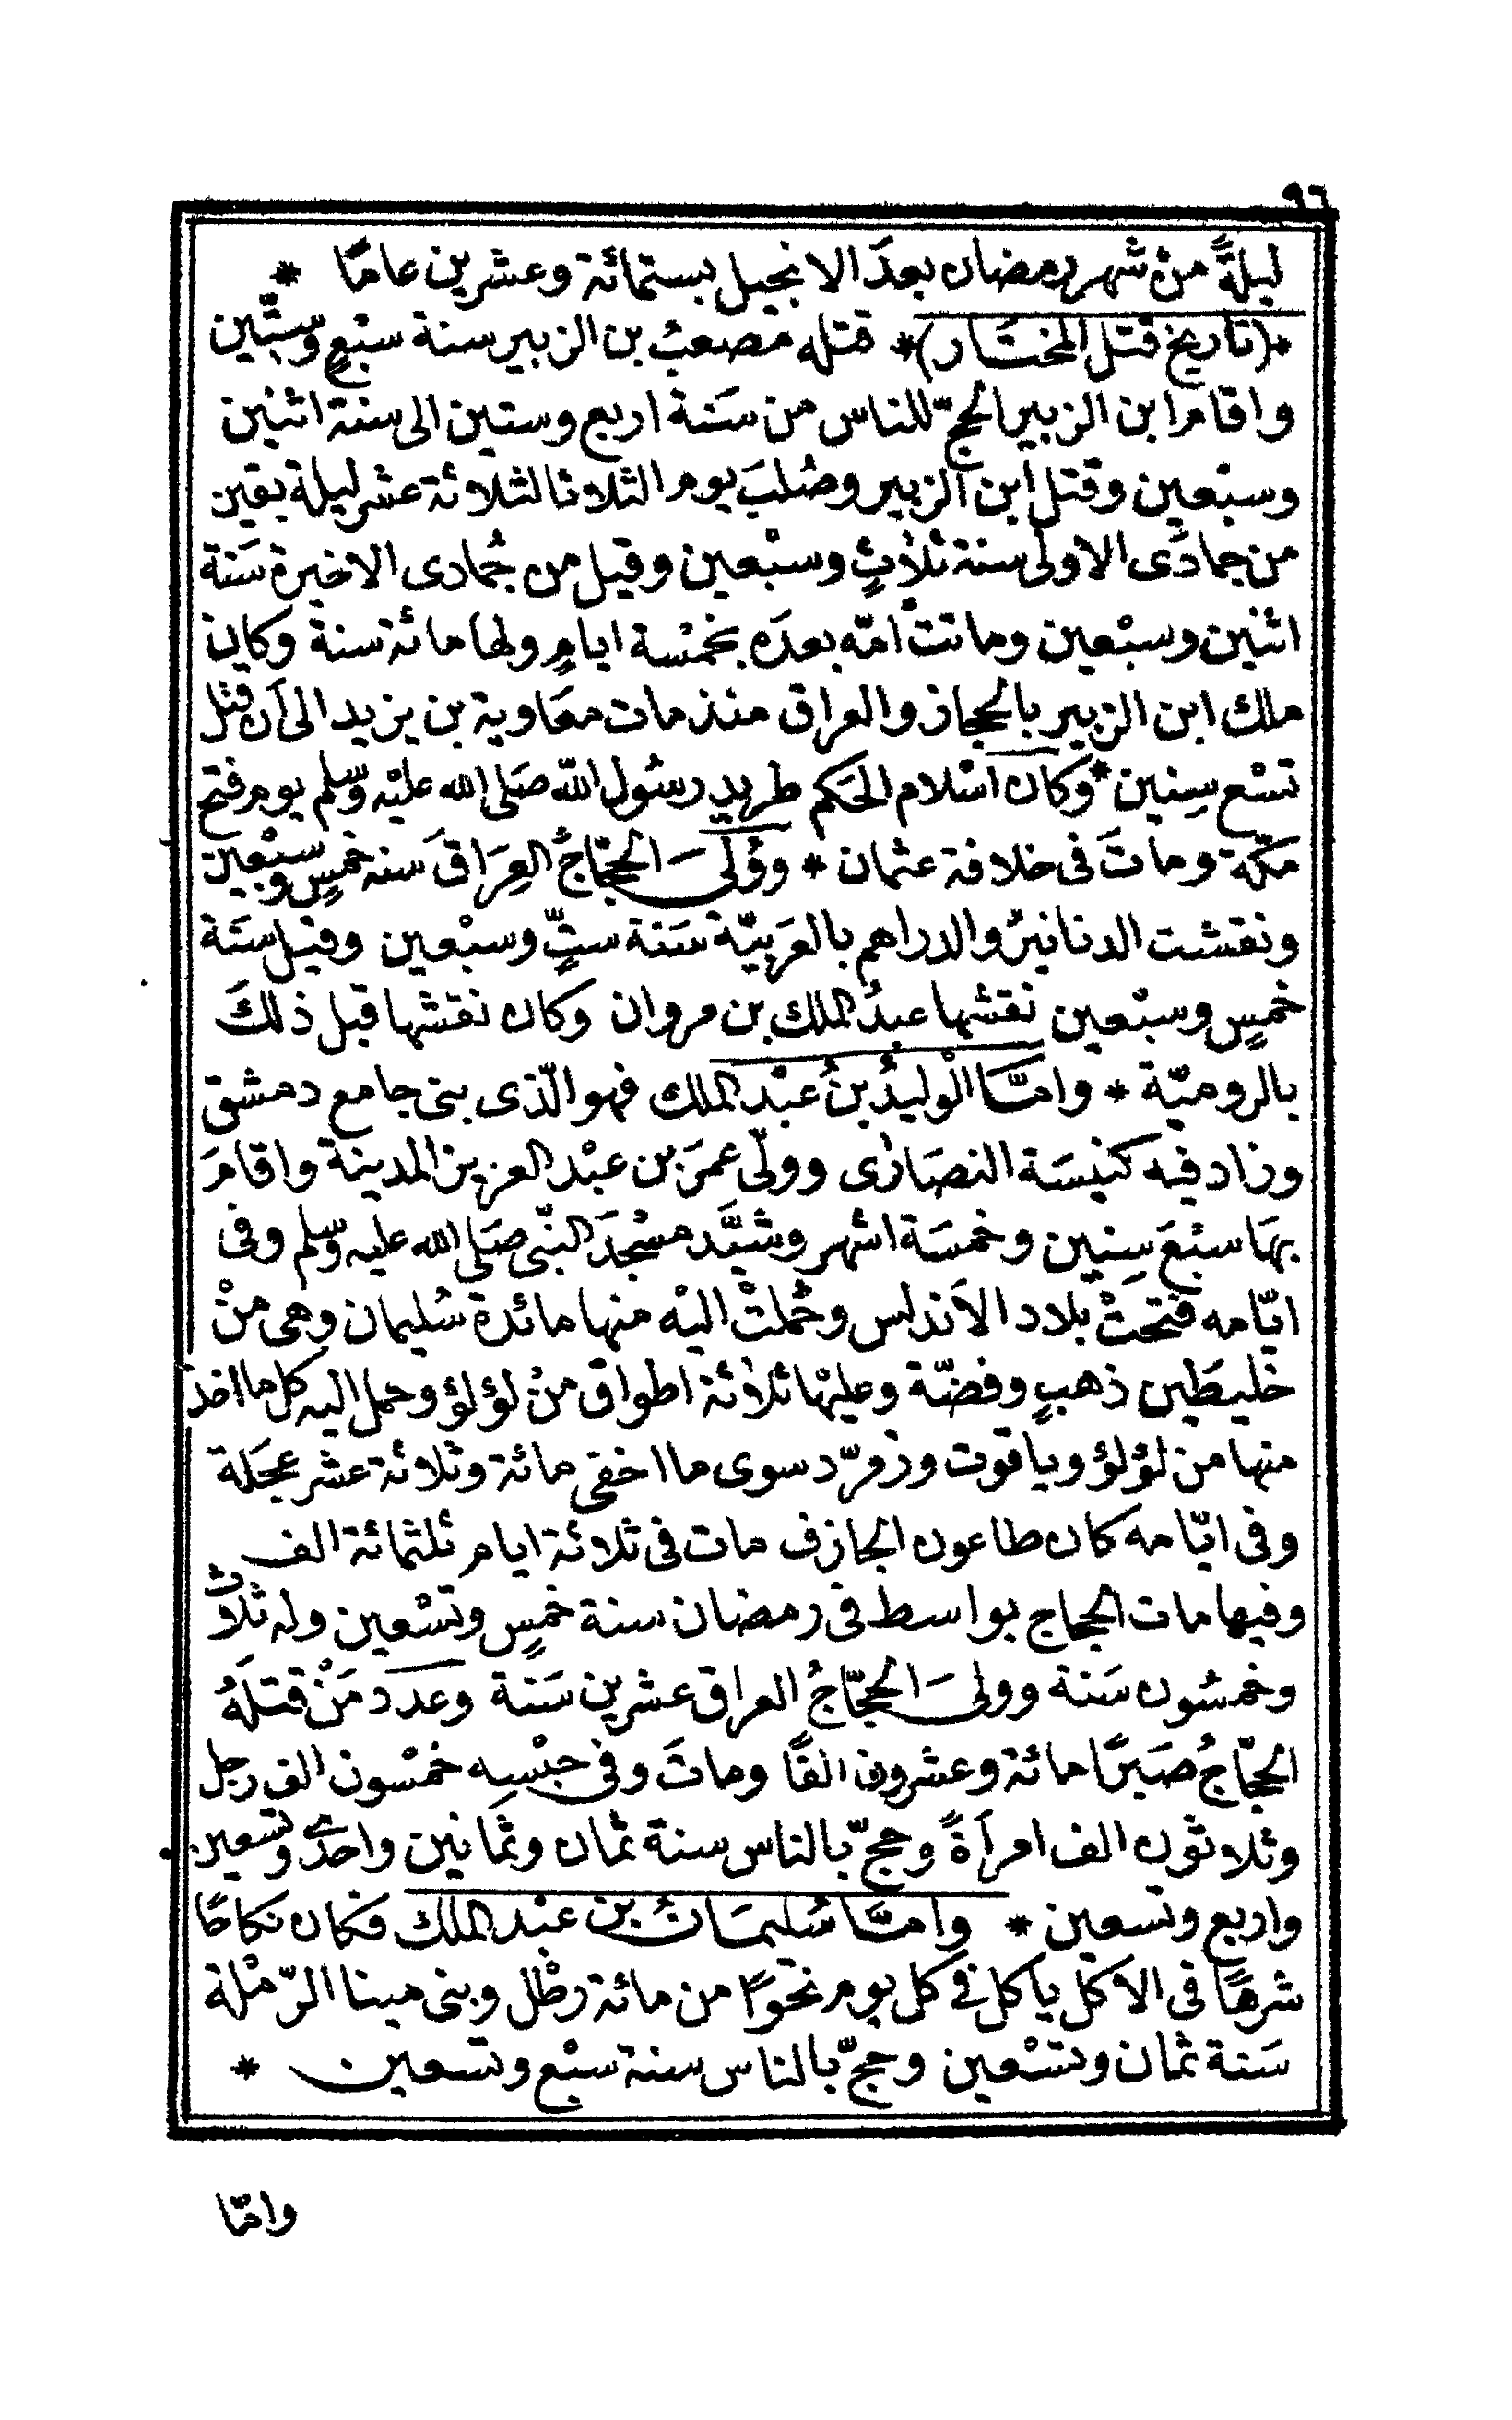 ٩٦
ليلةً منْ شهر رمضان بعدَ الانجيل بستمائة وعشرين عامًا *
*(تاريخ قتل المختَار)* قتله مصعبُ بن الزبير سنة سبْعٍ وستّين
واقام ابن الزبير الحجّ للناس من سَنة اربع وستين الى سنة اثنين
وسبْعين وقتل ابن الزبير وصُلبَ يوم الثلاثا لثلاثة عشر ليلة بقين
من جمادَى الاولى سنة ثلاثٍ وسبْعين وقيل من جُمادى الاخيرة سَنة
اثنين وسبْعين وماتتْ امّه بعدَه بخمْسة ايامٍ ولها مائة سنة وكان
ملك ابن الزبير بالحجاز والعراق منذ مات معَاوية بن يزيد الى أن قتل
تسْع سِنين * وكان اسْلام الحَكم طريدِ رسُول اللّه صَلى الله عليْه وسّلم يوم فتح
مكّة وماتَ فى خلافة عثمان * ووُلىَ الحجّاجُ العِرَاقَ سنه خمسٍ وسبْعين
ونقشت الدنانيرُ والدراهم بالعَربيّة سَنة ستٍّ وسبْعين وقيل سَنة
خمسٍ وسبْعين نقشها عبدُ الملك بن مروان وكان نقشها قبل ذلكَ
بالروميّة * وامَّا الْوليدُ بنُ عبْد الملك فهو الّذى بنى جامع دمشق
وزاد فيه كنيسَة النصَارٰى وولّى عمَر بن عبْد العزيز المدينة واقامَ
بهَا سبْعَ سِنِين وخمسَة اشهر وشيَّد مسْجدَ النبّى صَلى الله عليه وسّلم وفى
ايّامه فتحتْ بلاد الاَندلس وحُملتْ اليْه منها مائدة سُليمان وهى منْ
خليطَين ذهبٍ وفضّة وعليْها ثلاثة اطواق منْ لؤلؤ وحمل اليه كل ما اخذ
منها من لؤلؤ وياقوت وزمرّد سوى ما اخفى مائة وثلاثة عشر عجَلة
وفى ايّامه كان طاعون الجازف مات فى ثلاثة ايام ثلثمائة الف
وفيها مات الحجاج بواسط فى رمضان سنة خمسٍ وتسْعين وله ثلاث
وخمسُون سَنة وولىَ الحجّاجُ العراق عشرين سَنة وعدد مَنْ قتلَهُ
الحجّاجُ صَبرًا مائة وعشرون الفًا وماتَ وفى حبْسِه خمْسون الف رجل
وثلاثون الف امرأةً وحجّ بالناس سنة ثمان وثمانين واحدى وتسعين
واربع وتسعين * وامَّا سُليمَانُ بن عبْد الملك فكان نكاحًا
شرهًا فى الاكل ياكل فى كل يوم نحوًا من مائة رطْل وبنى مينا الرّمْلة
سَنة ثمان وتسْعين وحجّ بالناس سنة سبْع وتسعين *
وامّا